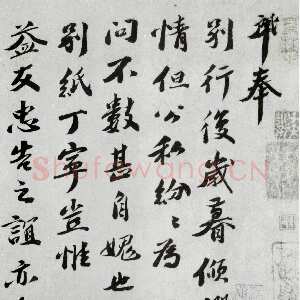 奉
別行後歲暮傾
情但公私紛々為
問不數甚自媿也
別紙丁寧豈惟
益友忠告之誼亦